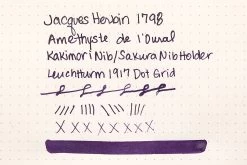 Jacques Herbin 1798
Amethyste de l'Oural
Kakimori Nib/Sakura Nib Holder
Leuchtturm 1917 Dot Grid
X X X X X X X